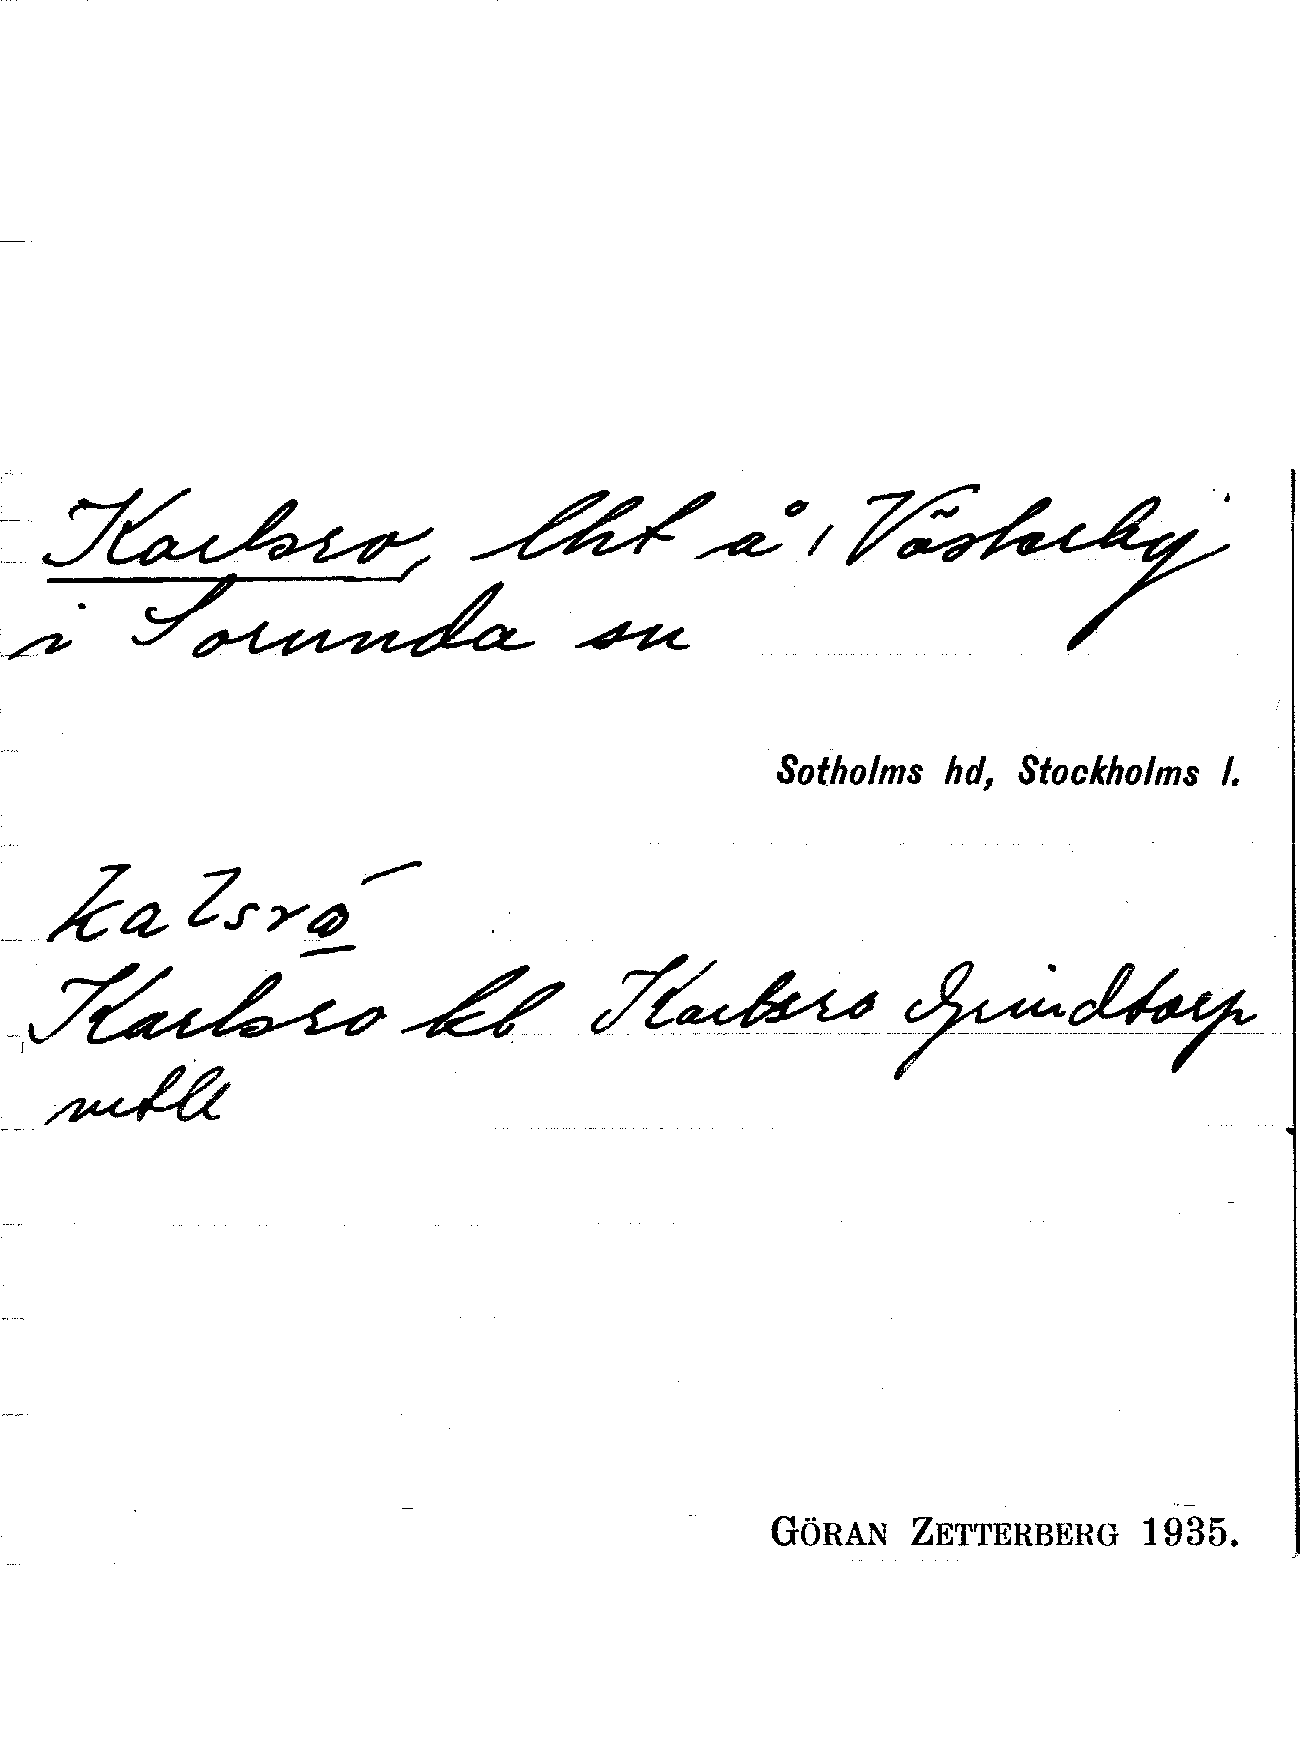 Karlsro, lht å 1 Västerby
i Sorunda sn
Sotholms hd, Stockholms l.
kalsrώ̲
Karlsro kb Karlsro Grindtorp
mtbl
GÖRAN ZETTERBERG 1935.